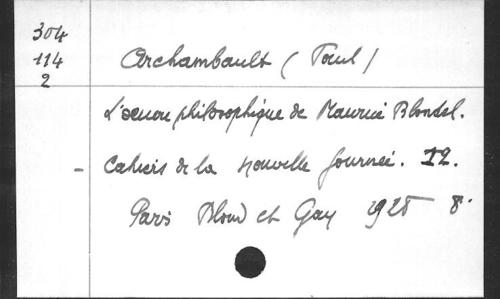 304
114
2
Archambault (Paul)
L'œuvre philosophique de Maurice Blondel.
Cahiers de la Nouvelle Journée. 12.
Paris Bloud et Gay 1928 8°